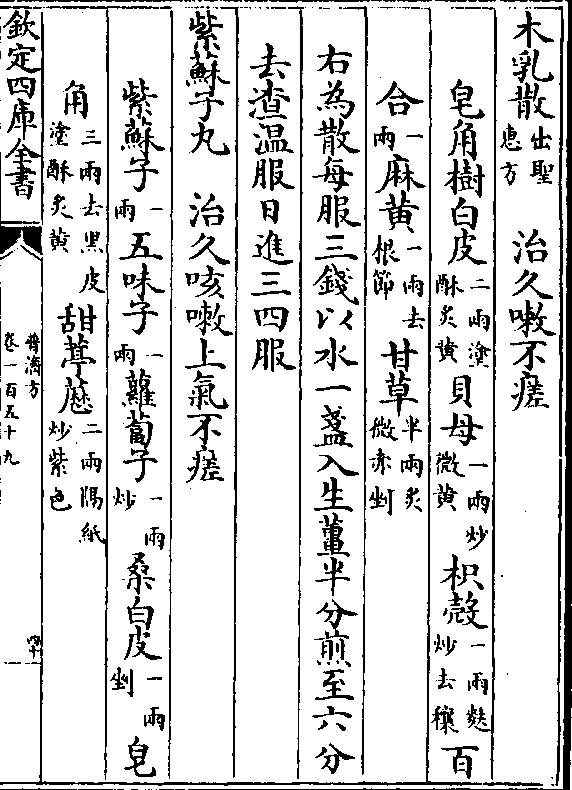 木乳散出聖惠方　治久嗽不瘥
皂角樹白皮二兩塗酥炙黃貝母一兩炒微黃枳殼一兩麩炒去穰百
合一兩麻黃一兩去根節甘草半兩炙微赤剉
右為散每服三錢以水一盞入生薑半分煎至六分
去渣溫服日進三四服
紫蘇子丸　治久咳嗽上氣不瘥
紫蘇子一兩五味子一兩蘿蔔子一兩炒桑白皮一兩剉皂
角三兩去黑皮塗酥炙黃甜葶藶二兩隔紙炒紫色
欽定四庫全書
普濟方
卷一百五十九